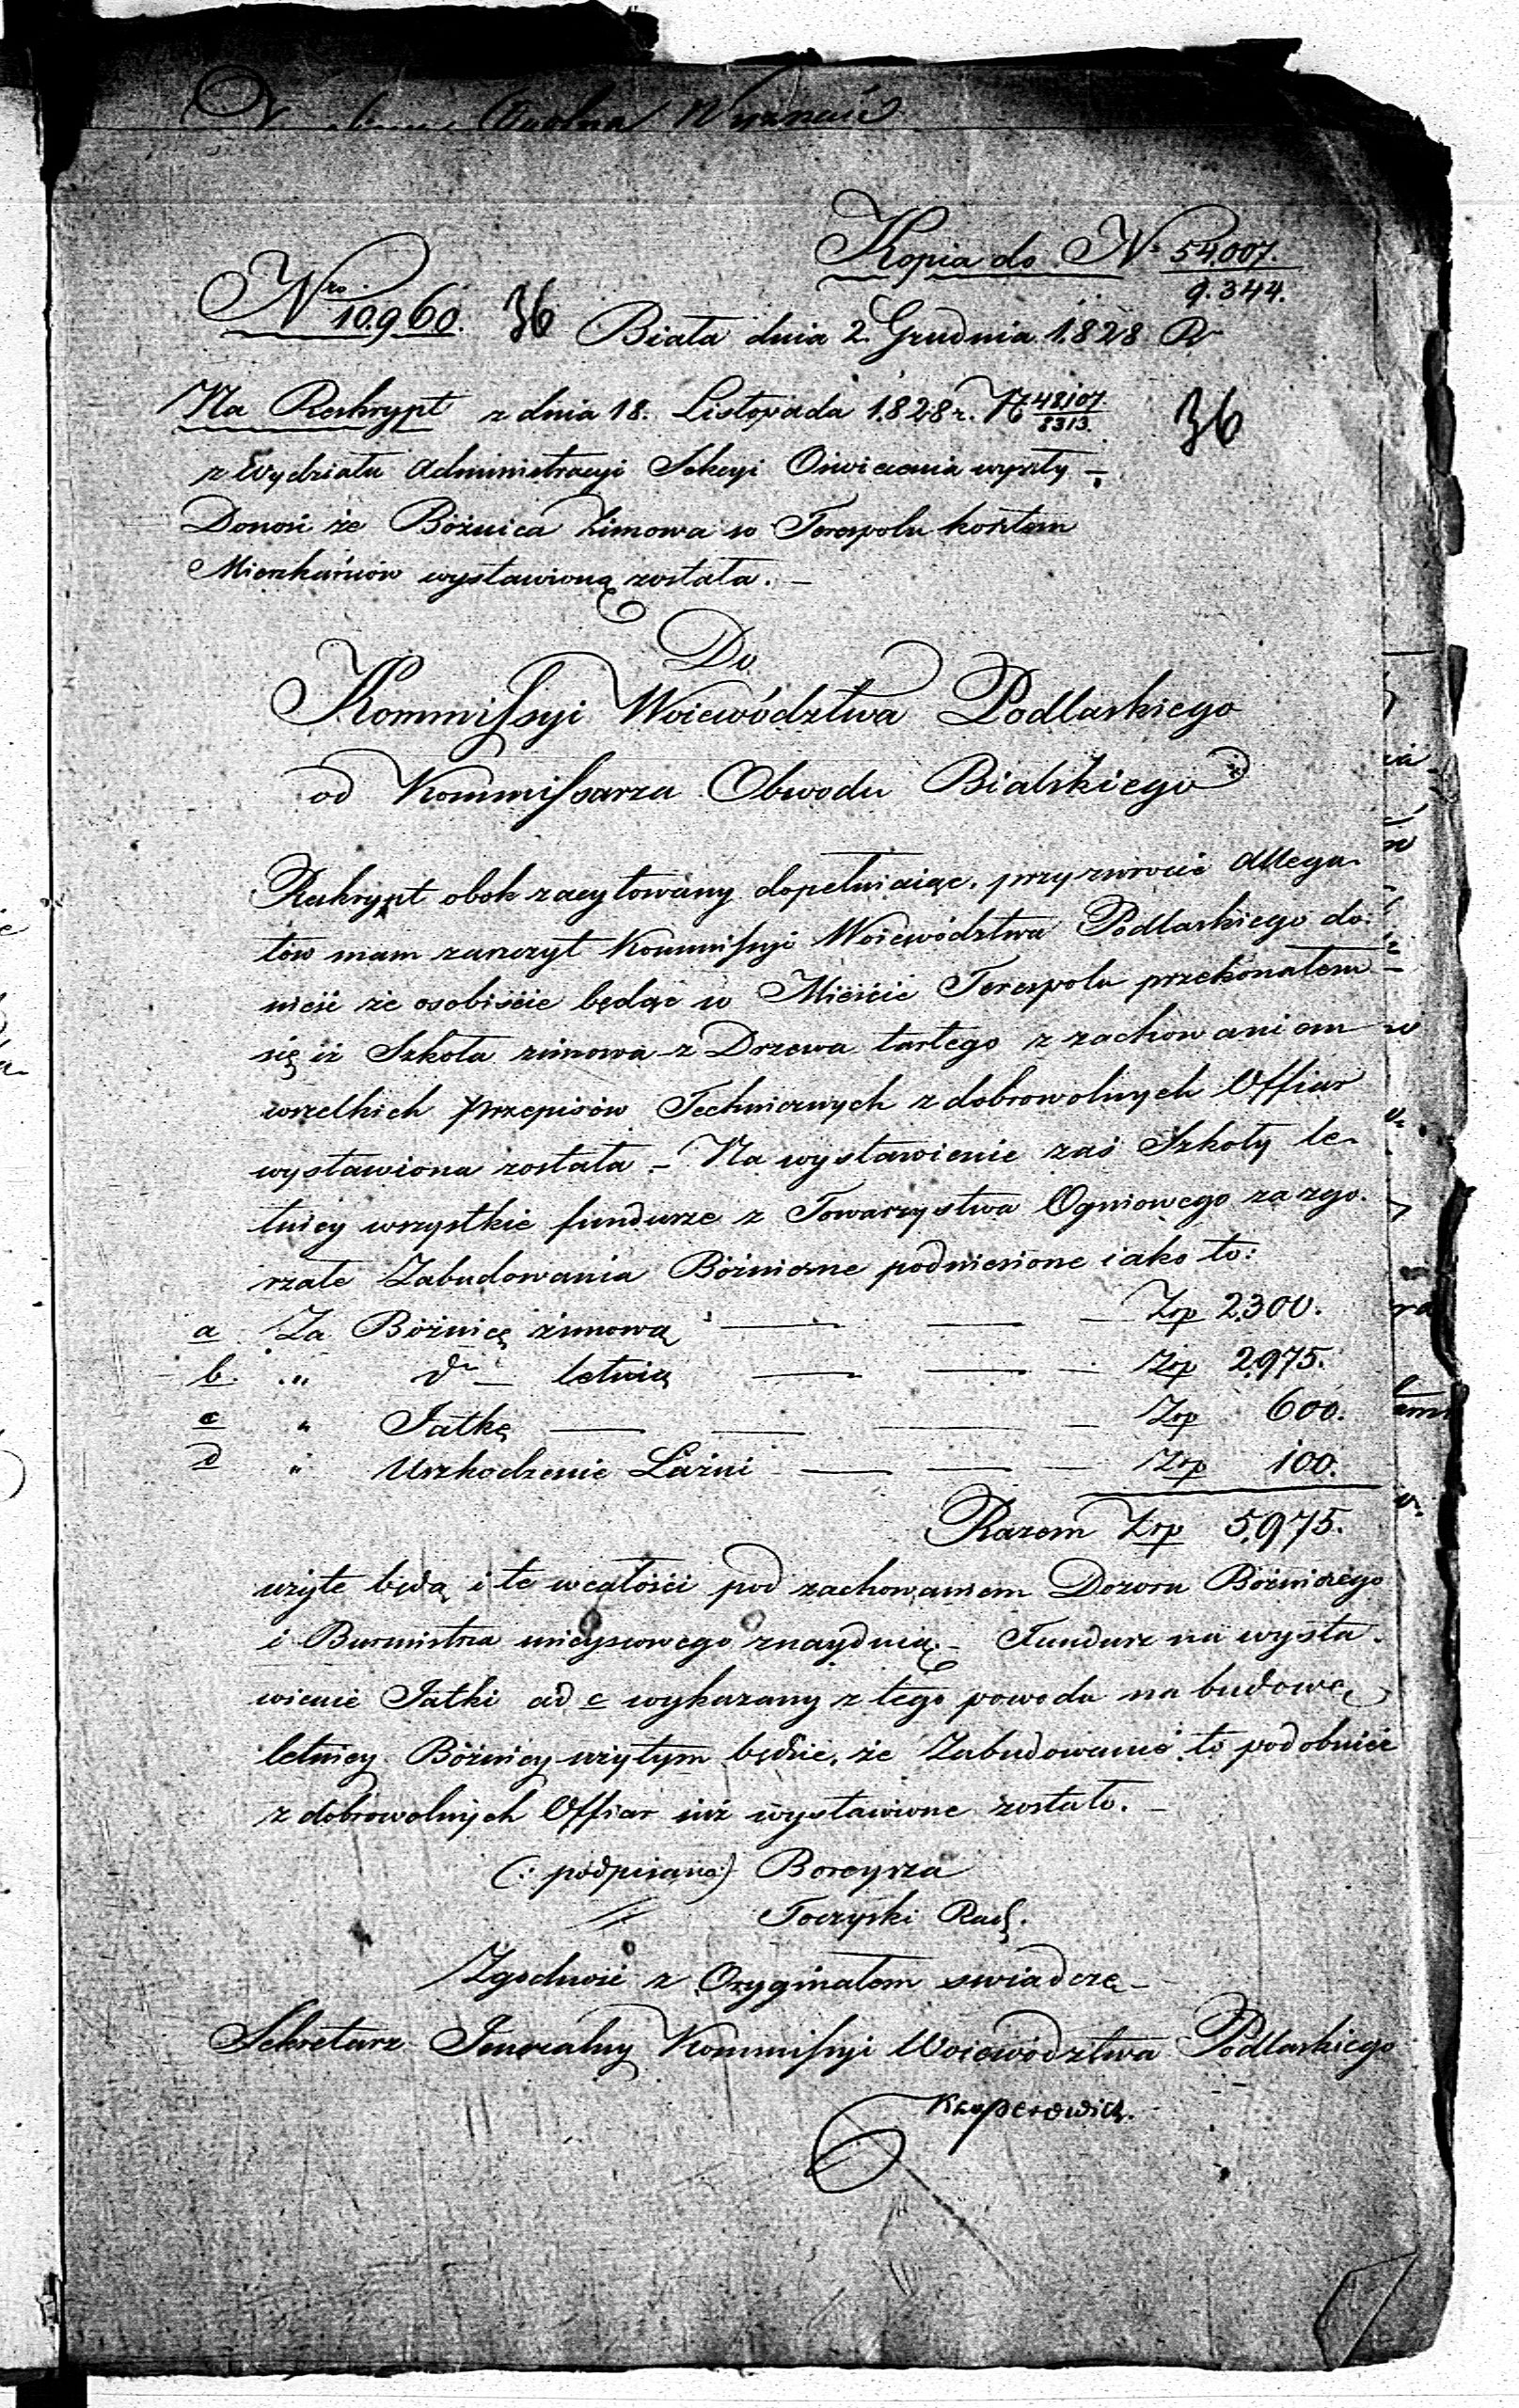 Kopia do N 54.007.
9.344.
Nro 10.960. 36 Biała dnia 2. Grudnia 1.828 R
Na Reskrypt z dnia 18. Listopada 1.828 r. N 48107 36
8313.
z Wydziału Administracyi Sekcyi Oświecenia wyszły –
Donosi że Bóżnica Zimowa w Terespolu kosztem
Mieszkańców wystawioną została. –
Do
Kommissyi Woiewództwa Podlaskiego
od Kommissarza Obwodu Bialskiego
Reskrypt obok zacytowany dopełniaiąc, przy zwrocie Allega-
tów mam zaszczyt Kommissyi Woiewództwa Podlaskiego do-
nieść że osobiście będąc w Mieście Terespolu przekonałem
się iż Szkoła zimowa z Drzewa tartego z zachowaniem
wszelkich przepisów Technicznych z dobrowolnych Offiar
wystawiona została – Na wystawienie zaś Szkoły le-
tniey wszystkie fundusze z Towarzystwa Ogniowego za zgo-
rzałe Zabudowania Bóżniczne podniesione iako to:
a Za Bóżnicę zimową — — — Złp 2.300.
b. „ do – letnią — — — Złp 2.975.
c „ Jatkę — — — — Złp 600.
d „ Uszkodzenie Łaźni — — — Złp 100.
Razem Złp 5,975.
użyte będą i te w całości pod zachowaniem Dozoru Bóżniczego
i Burmistrza mieyscowego znayduią. – Fundusz na wysta-
wienie Jatki ad c wykazany z tego powodu na budowę
letniey Bóżnicy użytym będzie, że Zabudowanie to podobnież
z dobrowolnych Offiar iuż wystawione zostało. –
(: podpisano:) Boreysza
// Toczyski Rad.
Zgodność z Oryginałem świadczę –
Sekretarz Jeneralny Kommissyi Woiewództwa Podlaskiego